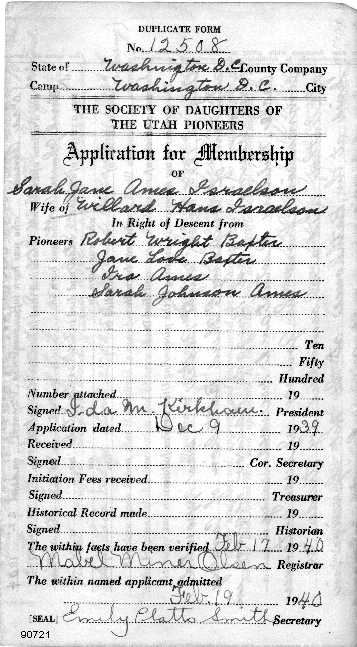 DUPLICATE FORM
No. 12508
State of Washington D.C. County Company
Camp Washington D. C. City
THE SOCIETY OF DAUGHTERS OF
THE UTAH PIONEERS
Application for Membership
OF
Sarah Jane Ames Israelson
Wife of Willard Hans Israelson
In Right of Descent from
Pioneers Robert Wright Baxter
Jane Love Baxter
Ira Ames
Sarah Johnson Ames
Ten
Fifty
Hundred
Number attached 19
Signed Ida M. Kirkham. President
Application dated Dec 9 1939
Received 19
Signed Cor. Secretary
Initiation Fees received 19
Signed Treasurer
Historical Record made 19
Signed Historian
The within facts have been verified Feb 17 1940
Mabel Miner Olsen Registrar
The within named applicant admitted
Feb. 19 1940
[SEAL] Emily Platts Smith Secretary
90721